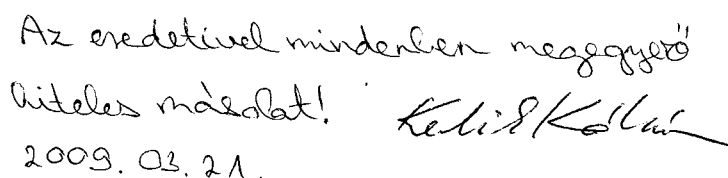 Az eredetivel mindenben megegyező
hiteles másolat! Kálmán
2009. 03. 21.